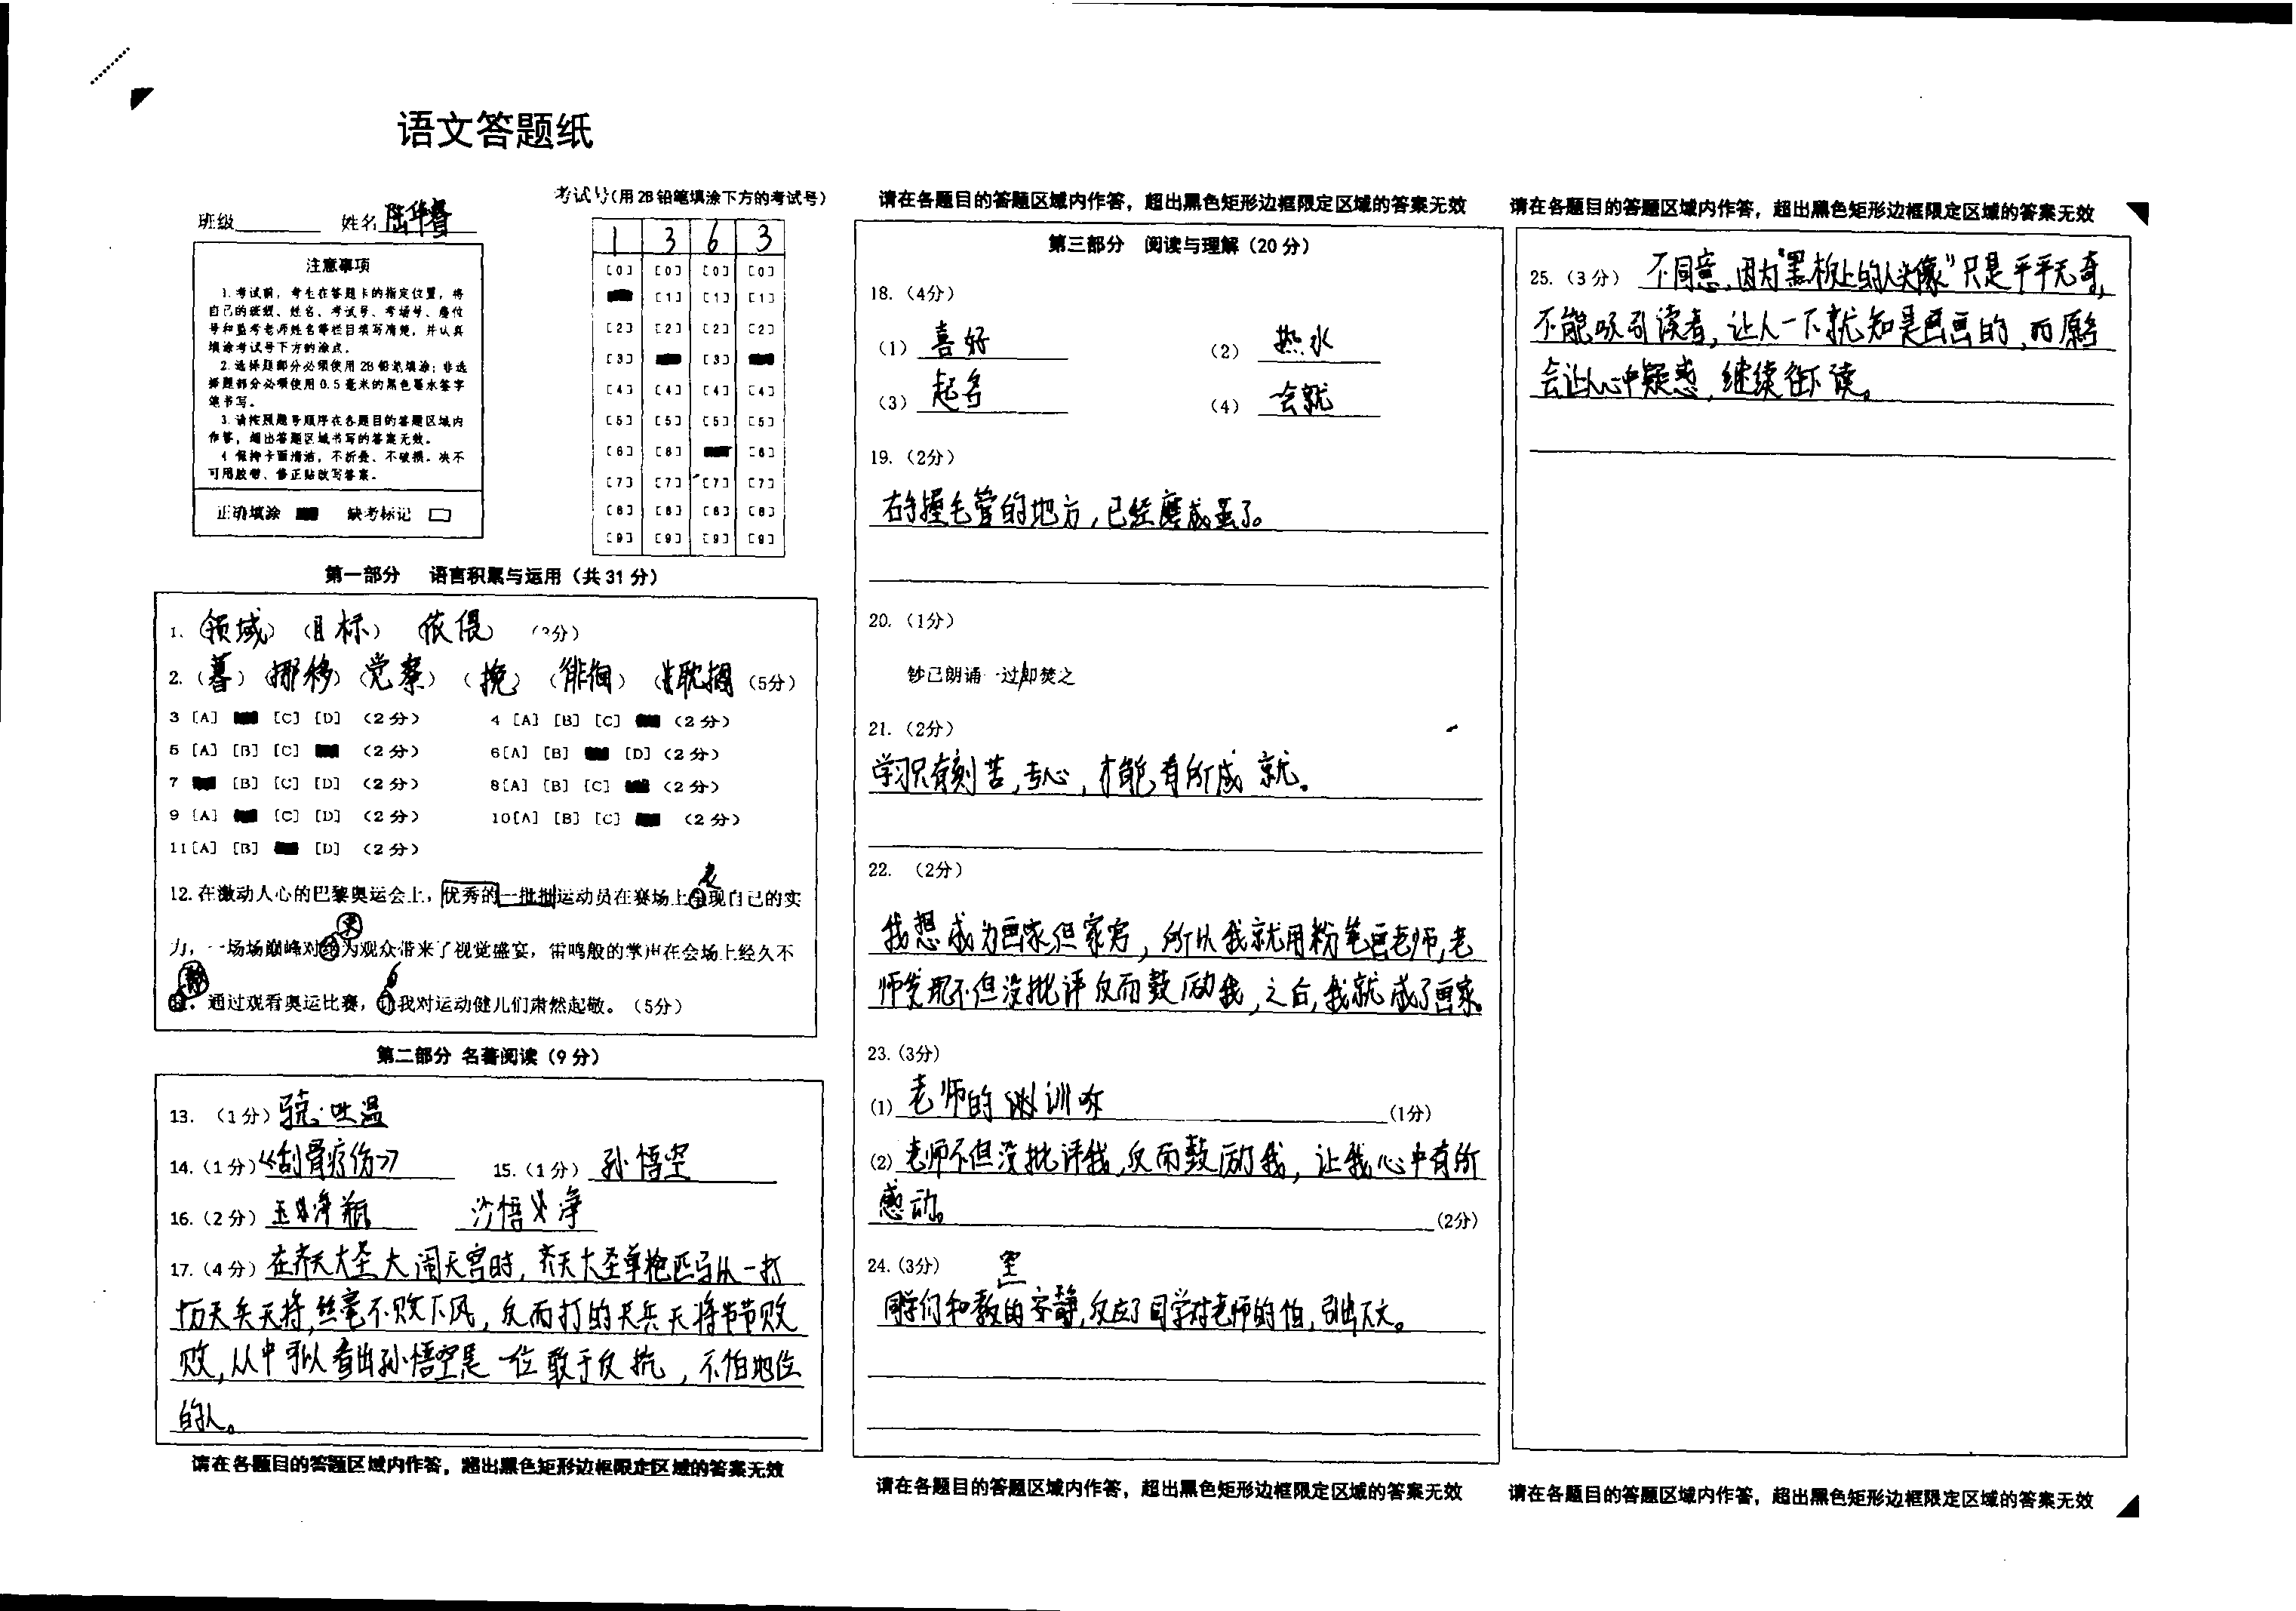 语文答题纸
班级 姓名 陆华睿
考试号(用 2B 铅笔填涂下方的考试号)
1 3 6 3
[0] [0] [0] [0]
[1] [1]
[2] [2] [2] [2]
[3] [3]
[4] [4] [4] [4]
[5] [5] [5] [5]
[6] [6] [6]
[7] [7] [7] [7]
[8] [8] [8] [8]
[9] [9] [9] [9]
注意事项
1.考试前,考生在答题卡的指定位置,将
自己的班级、姓名、考试号、考场号、座位
号和监考老师姓名等栏目填写清楚,并认真
填涂考试号下方的涂点。
2.选择题部分必须使用 2B 铅笔填涂;非选
择题部分必须使用 0.5 毫米的黑色墨水签字
笔书写。
3.请按照题号顺序在各题目的答题区域内
作答,超出答题区域书写的答案无效。
4 保持卡面清洁,不折叠、不破损。决不
可用胶带、修正贴改写答案。
正确填涂 缺考标记
第一部分 语言积累与运用(共 31 分)
1.(领域)(目标)(依偎)(3分)
2.(暮)(挪移)(觉察)(挽)(徘徊)(耽搁)(5分)
3 [A] [C] [D] (2 分) 4 [A] [B] [C] (2 分)
5 [A] [B] [C] (2 分) 6[A] [B] [D] (2 分)
7 [B] [C] [D] (2 分) 8[A] [B] [C] (2 分)
9 [A] [C] [D] (2 分) 10[A] [B] [C] (2 分)
11[A] [B] [D] (2 分)
12.在激动人心的巴黎奥运会上,优秀的一批批运动员在赛场上现自己的实
力,一场场巅峰对为观众带来了视觉盛宴,雷鸣般的掌声在会场上经久不
。通过观看奥运比赛,我对运动健儿们肃然起敬。(5分)
第二部分 名著阅读(9 分)
13. (1 分)
14.(1 分)《刮骨疗伤》 15.(1 分)孙悟空
16.(2 分)玉净瓶 沙悟净
17.(4 分)在齐天大圣大闹天宫时,齐天大圣单枪匹马从一打
十万天兵天将,丝毫不败下风,反而打的天兵天将节节败
败,从中可以看出孙悟空是一位敢于反抗,不怕地位
的人。
请在各题目的答题区域内作答,超出黑色矩形边框限定区域的答案无效
请在各题目的答题区域内作答,超出黑色矩形边框限定区域的答案无效
第三部分 阅读与理解(20 分)
18.(4分)
(1)喜好 (2)热水
(3)起名 (4)会就
19.(2分)
右手握毛管的地方,已经磨成茧了。
20.(1分)
钞已朗诵一过/即焚之
21.(2分)
学习只有刻苦,专心,才能有所成就。
22. (2分)
我想成为画家但家穷,所以我就用粉笔画老师,老
师发现不但没批评反而鼓励我,之后,我就成了画家。
23.(3分)
(1)老师的训斥 (1分)
(2)老师不但没批评我,反而鼓励我,让我心中有所
感动。 (2分)
24.(3分)
同学们和教室的安静,反应了同学对老师的怕,引出下文。
请在各题目的答题区域内作答,超出黑色矩形边框限定区域的答案无效
请在各题目的答题区域内作答,超出黑色矩形边框限定区域的答案无效
25.(3 分)不同意,因为“黑板上的人头像”只是平平无奇,
不能吸引读者,让人一下就知是画画的,而原名
会让人心中疑惑,继续往下读。
请在各题目的答题区域内作答,超出黑色矩形边框限定区域的答案无效